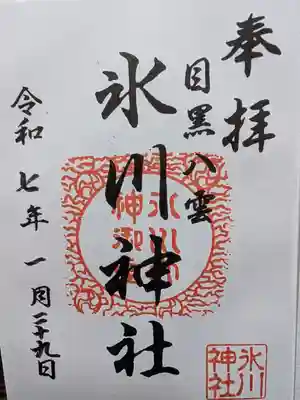 奉拝
目黒八雲
氷川神社
令和七年一月二十九日
氷川
神社